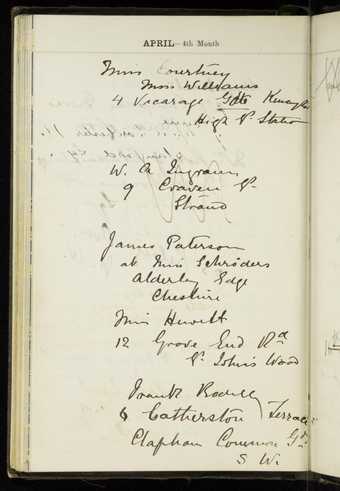 APRIL—4th Month
Miss Courtney
Miss Williams
4 Vicarage Gate Kensington
High St Station
W. A. Ingram
9 Craven St
Strand
James Paterson
at Miss Schröders
Alderley Edge
Cheshire
Miss Hewitt
12 Grove End Rd
St. John's Wood
Frank
6 Catherston Terrace
Clapham Common Gdn
S W.